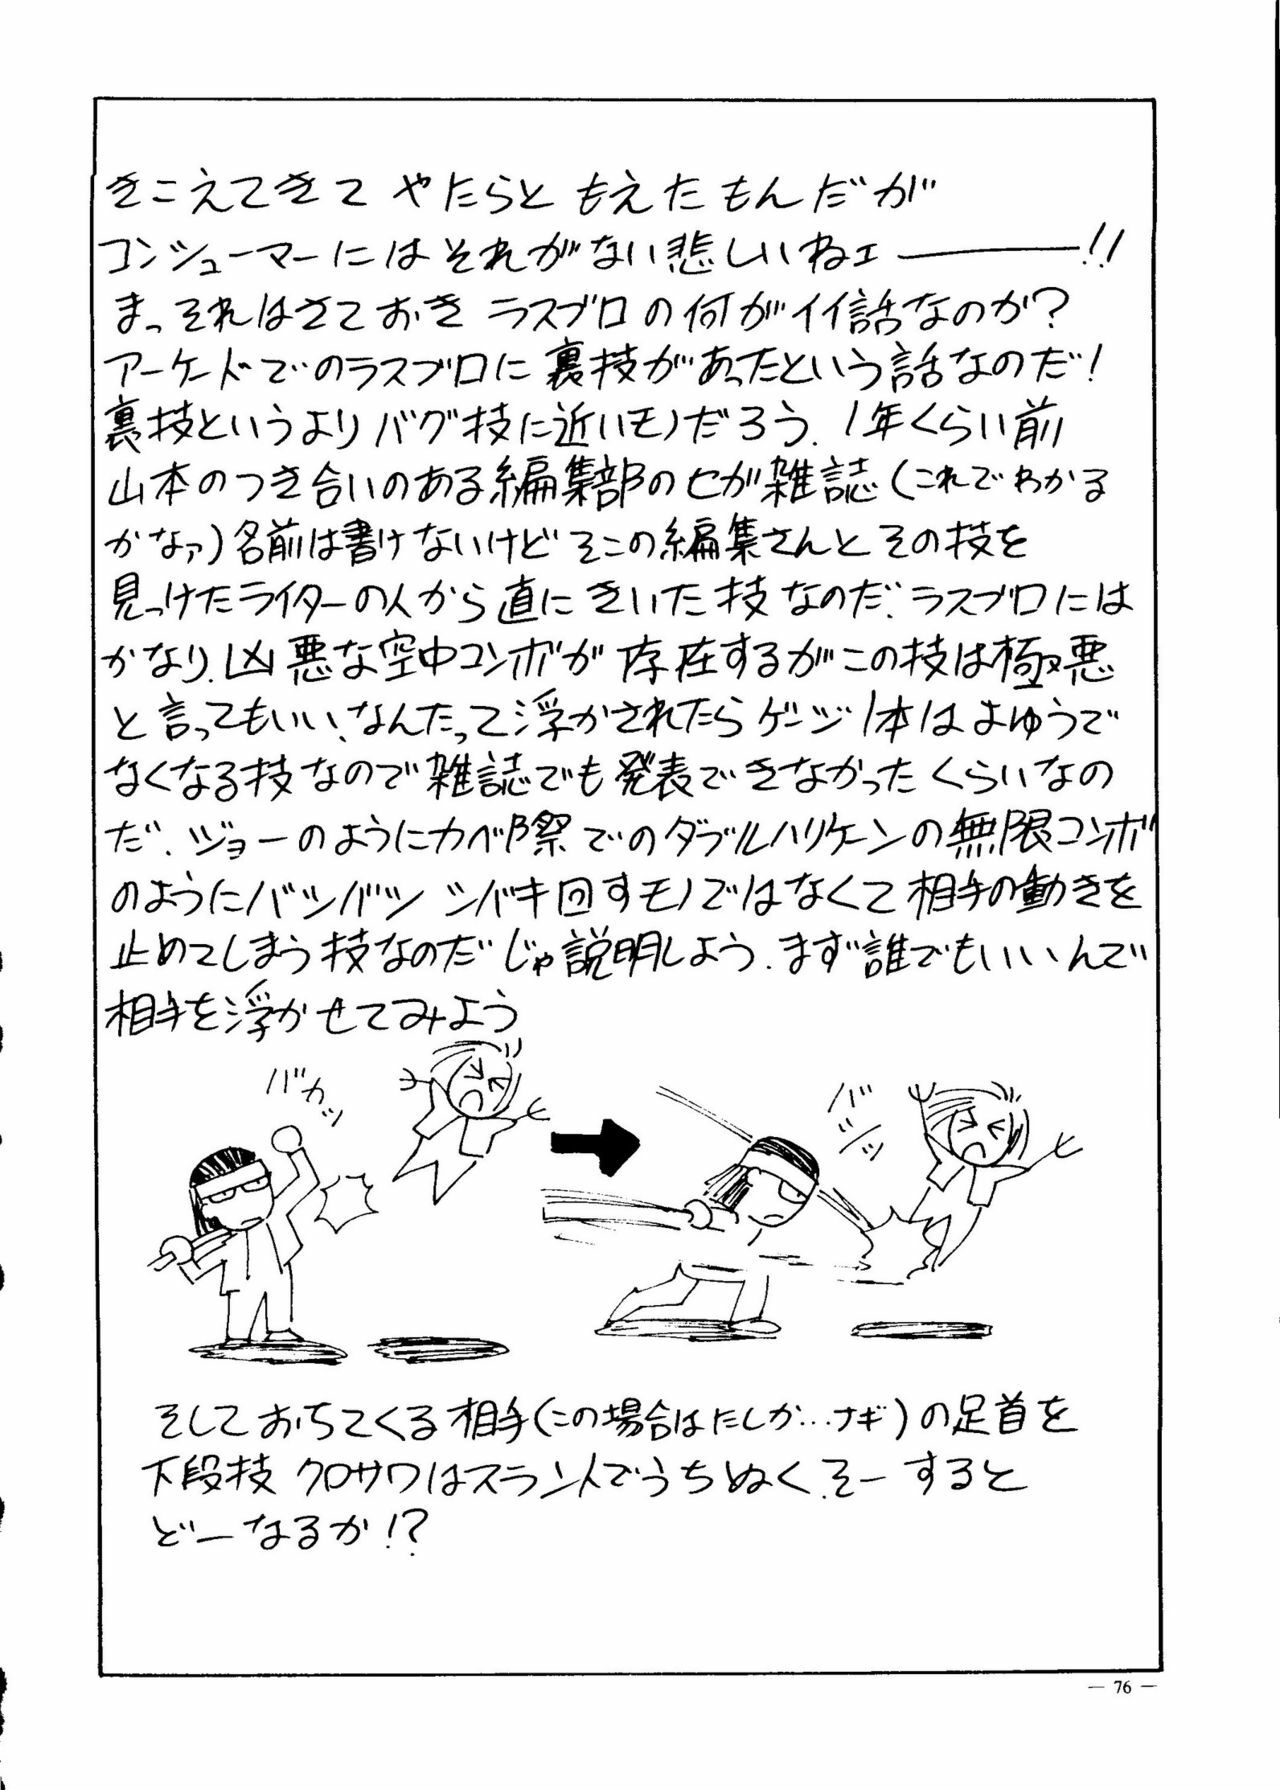 きこえてきて やたらと もえたもんだが
コンシューマーにはそれがない悲しいねェ ―――!!
まっそれはさておき ラスブロの何がイイ話なのか?
アーケードでのラスブロに裏技があったという話なのだ!
裏技というよりバグ技に近いモノだろう、1年くらい前
山本のつき合いのある編集部のセガ雑誌(これでわかる
かなァ)名前は書けないけど そこの編集さんとその技を
見つけたライターの人から直にきいた技なのだ、ラスブロには
かなり、凶悪な空中コンボが存在するがこの技は極悪
と言ってもいい、なんたって浮かされたらゲージ1本はよゆうで
なくなる技なので雑誌でも発表できなかったくらいなの
だ、ジョーのようにカベ際でのダブルハリケーンの無限コンボ
のようにバシバシ シバキ回すモノではなくて相手の動きを
止めてしまう技なのだ じゃ説明しよう、まず誰でもいいんで
相手を浮かせてみよう
バカッ
バシッ
そしておちてくる相手(この場合はたしか…ナギ)の足首を
下段技 クロサワはスラントでうちぬく、そーすると
どーなるか!?
― 76 ―